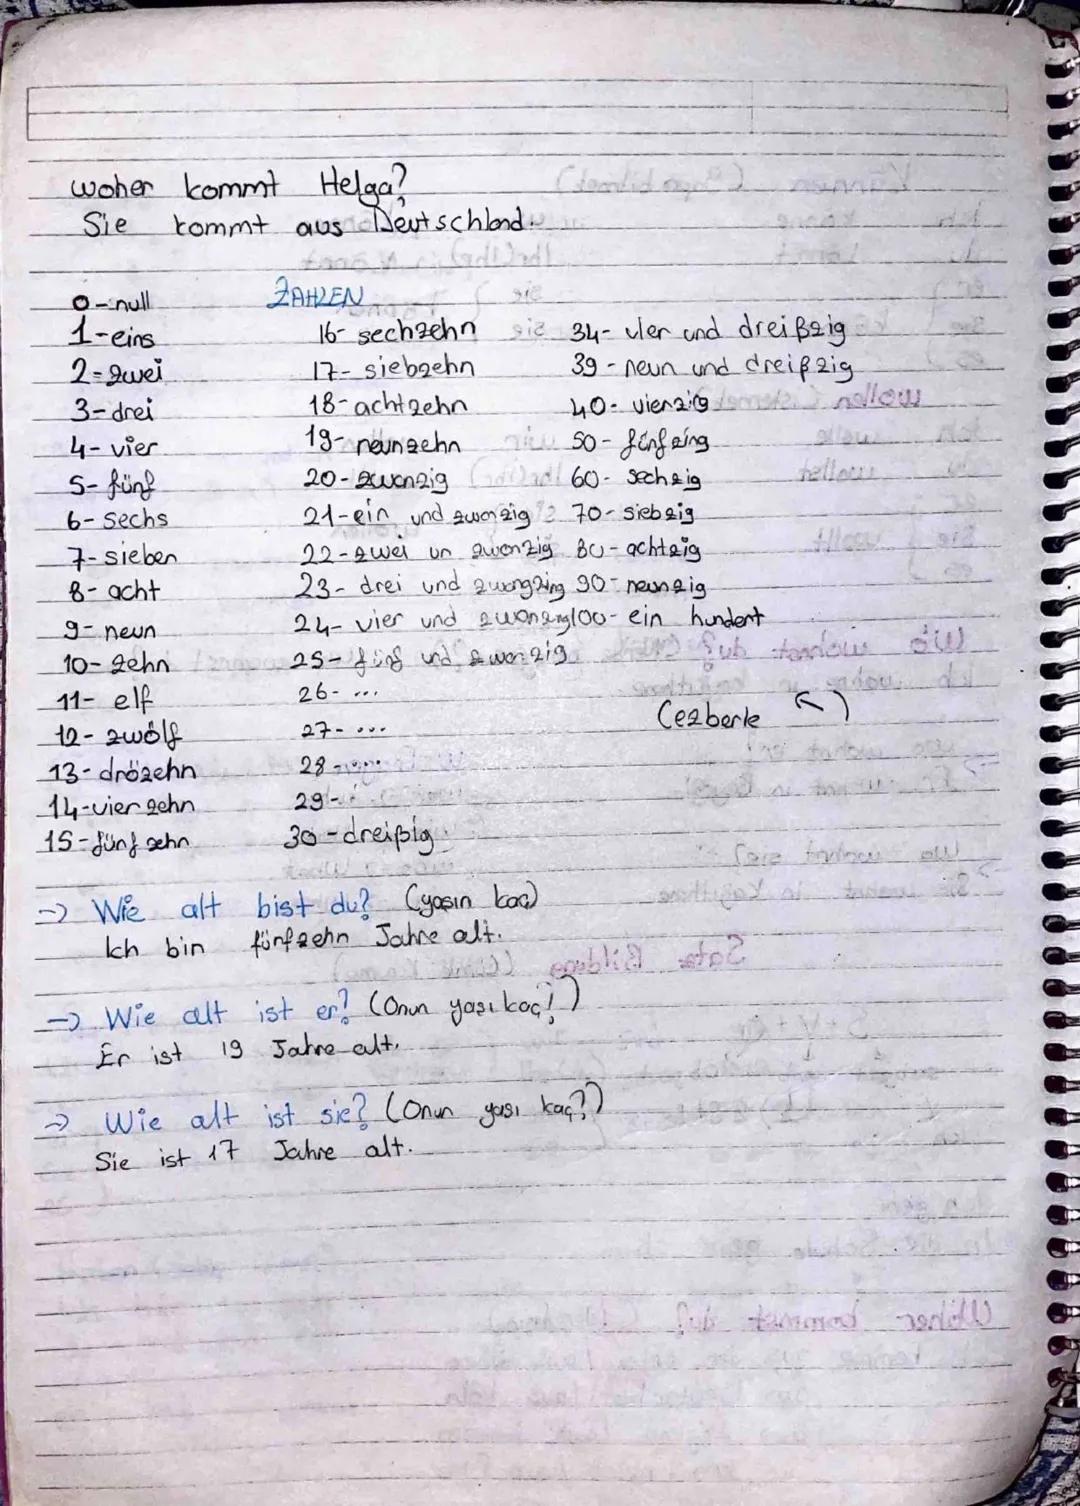 woher kommt Helga?
Sie kommt aus Deutschland.
ZAHLEN
0-null
1-eins
2=zwei
3-drei
4-vier
5-fünf
6-sechs
7-sieben
8-acht
9-neun
10-zehn
11-elf
12-zwölf
13-drözehn
14-vierzehn
15-fünfzehn
16-sechzehn
17-siebzehn
18-achtzehn
19-neunzehn
20-zwanzig
21-ein und zwanzig
22-zwei un zwanzig
23-drei und zwangzing
24-vier und zwanzing
25-fünf und zwanzig
26-...
27-...
28-...
29-..
30-dreißig
34-vier und dreißzig
39-neun und dreißzig
40-vierzig
50-fünfzing
60-sechzig
70-siebzig
80-achtzig
90-neunzig
100-ein hundert
(ezberle ↖)
→ Wie alt bist du? (yaşın kaç)
Ich bin fünfzehn Jahre alt.
→ Wie alt ist er? (Onun yaşı kaç?)
Er ist 19 Jahre alt.
→ Wie alt ist sie? (Onun yaşı kaç?)
Sie ist 17 Jahre alt.